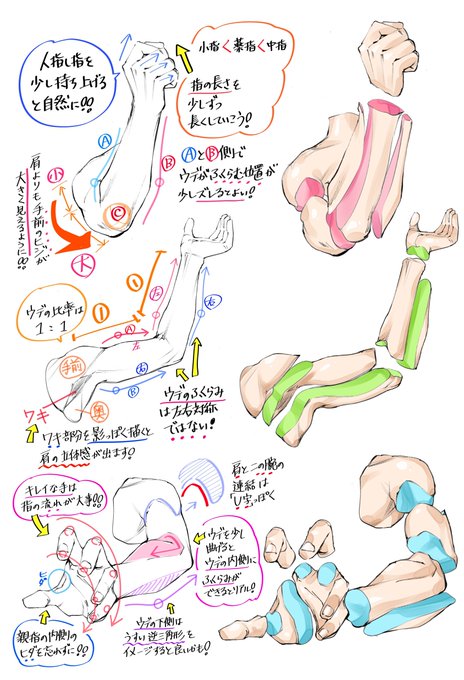 人指し指を
少し持ち上げる
と自然に!!
小指<薬指<中指
指の長さを
少しずつ
長くしていこう!
ⒶとⒷ側で
ウデがふくらむ位置が
少しズレるとよい!
Ⓐ
Ⓑ
Ⓒ
小
大
肩よりも手前のヒジが
大きく見えるように!!
ウデの比率は
1:1
①
①
Ⓐ
左
左
右
右
Ⓑ
手前
奥
ワキ
ワキ部分を影っぽく描くと
肩の立体感が出ます!
ウデのふくらみ
は左右対称
ではない!
キレイな手は
指の流れが大事!!
肩と二の腕の
連結は
U字っぽく
ウデを少し
曲げると
ウデの内側に
ふくらみが
できるとリアル!
ヒダ
親指の内側の
ヒダを忘れずに!!
ウデの下側は
うすい逆三角形を
イメージすると良いかも!